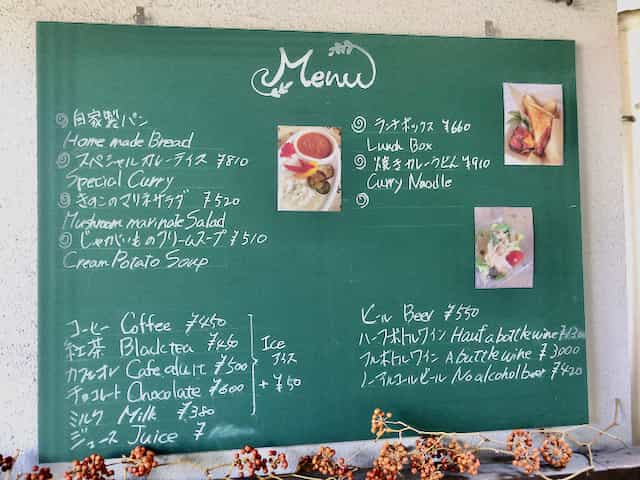 Menu
自家製パン
Home made Bread
スペシャルカレーライス ¥810
Special Curry
きのこのマリネサラダ ¥520
Mushroom marinate Salad
じゃがいものクリームスープ ¥510
Cream Potato Soup
ランチボックス ¥660
Lunch Box
焼きカレーうどん ¥910
Curry Noodle
コーヒー Coffee ¥450
紅茶 Black tea ¥450
カフェオレ Cafe au lait ¥500
チョコレート Chocolate ¥600
ミルク Milk ¥380
ジュース Juice ¥
Ice
アイス
+ ¥50
ビール Beer ¥550
ハーフボトルワイン Haufa bottle wine
フルボトルワイン A buttle wine ¥3000
ノーアルコールビール No alcohol beer ¥420